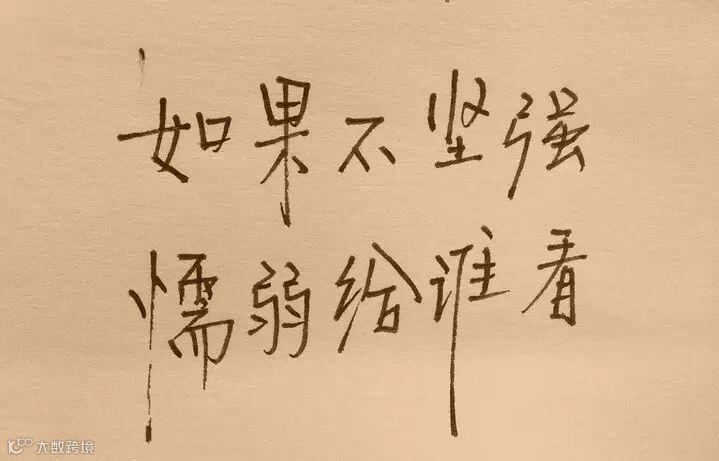 如果不坚强
懦弱给谁看
大数跨境